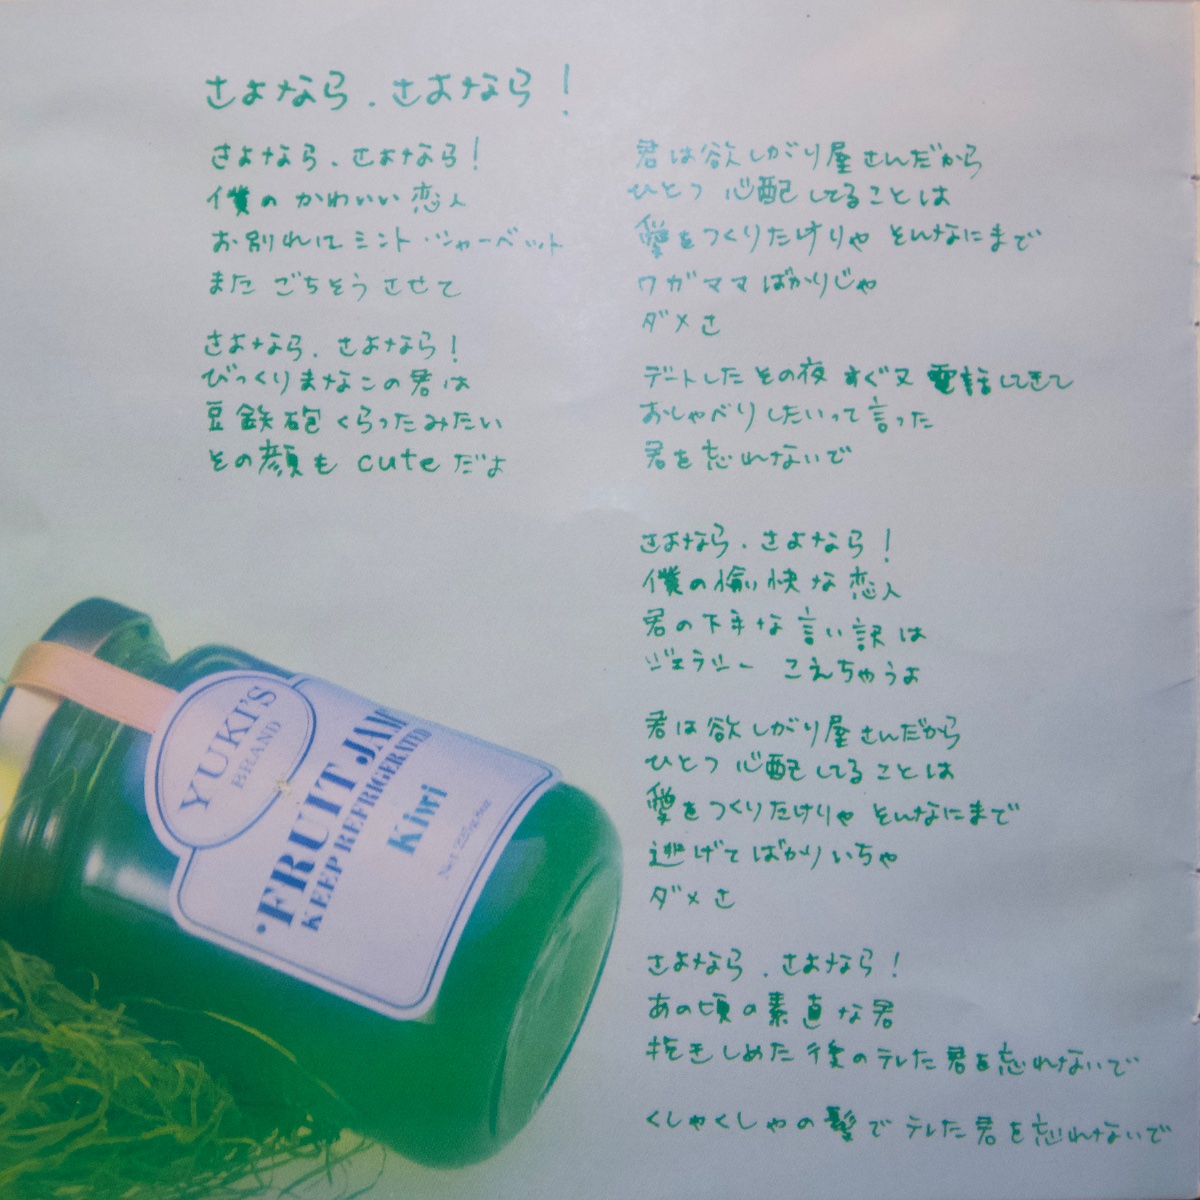 さよなら.さよなら!
さよなら.さよなら!
僕の かわいい 恋人
お別れに ミント・シャーベット
また ごちそう させて
さよなら.さよなら!
びっくりまなこの君は
豆鉄砲 くらったみたい
その顔も cute だよ
君は欲しがり屋さんだから
ひとつ 心配してることは
愛をつくりたけりゃ そんなにまで
ワガママ ばかりじゃ
ダメさ
デートした その夜 すぐ又 電話してきて
おしゃべりしたいって言った
君を忘れないで
さよなら.さよなら!
僕の愉快な恋人
君の下手な言い訳は
ジェラシー こえちゃうよ
君は欲しがり屋さんだから
ひとつ 心配してることは
愛をつくりたけりゃ そんなにまで
逃げてばかりいちゃ
ダメさ
さよなら.さよなら!
あの頃の素直な君
抱きしめた後のテレた君を忘れないで
くしゃくしゃの髪で テレた君を忘れないで
YUKI'S
BRAND
FRUIT JAM
KEEP REFRIGERATED
Kiwi